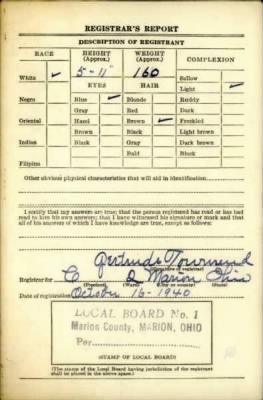 REGISTRAR'S REPORT
DESCRIPTION OF REGISTRANT
RACE HEIGHT (Approx.) WEIGHT (Approx.) COMPLEXION
White ✓ 5-11" 160 Sallow
EYES HAIR Light ✓
Negro Blue ✓ Blonde Ruddy
Gray Red Dark
Oriental Hazel Brown ✓ Freckled
Brown Black Light brown
Indian Black Gray Dark brown
Bald Black
Filipino
Other obvious physical characteristics that will aid in identification
I certify that my answers are true; that the person registered has read or has had
read to him his own answers; that I have witnessed his signature or mark and that
all of his answers of which I have knowledge are true, except as follows:
Gertrude Townsend
(Signature of registrar)
Registrar for Co Marion Ohio
(Precinct) (Ward)
Date of registration October 16-1940
LOCAL BOARD No. 1
Marion County, MARION, OHIO
Per
(STAMP OF LOCAL BOARD)
(The stamp of the Local Board having jurisdiction of the registrant
shall be placed in the above space.)